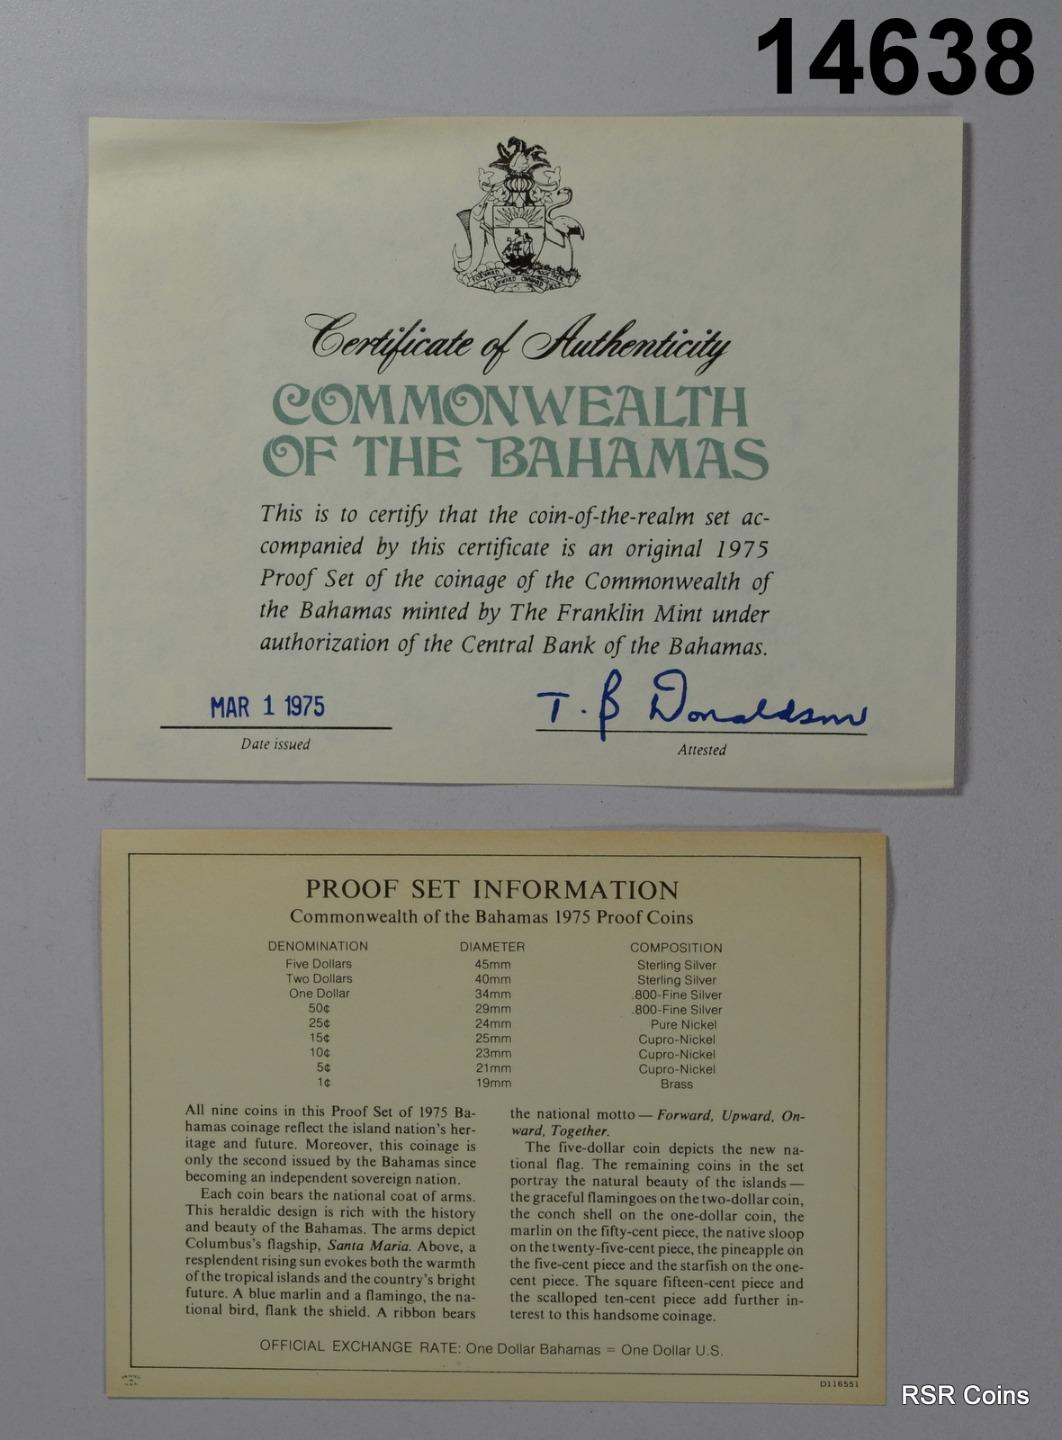 14638
FORWARD UPWARD ONWARD TOGETHER
Certificate of Authenticity
COMMONWEALTH
OF THE BAHAMAS
This is to certify that the coin-of-the-realm set ac-
companied by this certificate is an original 1975
Proof Set of the coinage of the Commonwealth of
the Bahamas minted by The Franklin Mint under
authorization of the Central Bank of the Bahamas.
MAR 1 1975
T. B Donaldson
Date issued
Attested
PROOF SET INFORMATION
Commonwealth of the Bahamas 1975 Proof Coins
DENOMINATION DIAMETER COMPOSITION
Five Dollars 45mm Sterling Silver
Two Dollars 40mm Sterling Silver
One Dollar 34mm .800-Fine Silver
50¢ 29mm .800-Fine Silver
25¢ 24mm Pure Nickel
15¢ 25mm Cupro-Nickel
10¢ 23mm Cupro-Nickel
5¢ 21mm Cupro-Nickel
1¢ 19mm Brass
All nine coins in this Proof Set of 1975 Ba-
hamas coinage reflect the island nation's her-
itage and future. Moreover, this coinage is
only the second issued by the Bahamas since
becoming an independent sovereign nation.
Each coin bears the national coat of arms.
This heraldic design is rich with the history
and beauty of the Bahamas. The arms depict
Columbus's flagship, Santa Maria. Above, a
resplendent rising sun evokes both the warmth
of the tropical islands and the country's bright
future. A blue marlin and a flamingo, the na-
tional bird, flank the shield. A ribbon bears
the national motto — Forward, Upward, On-
ward, Together.
The five-dollar coin depicts the new na-
tional flag. The remaining coins in the set
portray the natural beauty of the islands —
the graceful flamingoes on the two-dollar coin,
the conch shell on the one-dollar coin, the
marlin on the fifty-cent piece, the native sloop
on the twenty-five-cent piece, the pineapple on
the five-cent piece and the starfish on the one-
cent piece. The square fifteen-cent piece and
the scalloped ten-cent piece add further in-
terest to this handsome coinage.
OFFICIAL EXCHANGE RATE: One Dollar Bahamas = One Dollar U.S.
D116551
RSR Coins